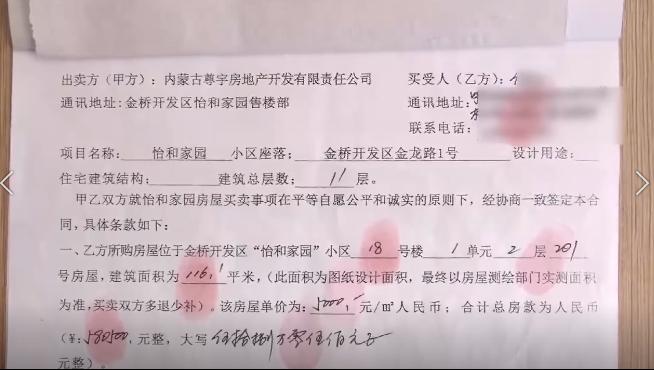 出卖方（甲方）：内蒙古尊宇房地产开发有限责任公司 买受人（乙方）：
通讯地址:金桥开发区怡和家园售楼部 通讯地址:
联系电话：
项目名称：怡和家园 小区座落：金桥开发区金龙路1号 设计用途：
住宅建筑结构： 建筑总层数：11层。
甲乙双方就怡和家园房屋买卖事项在平等自愿公平和诚实的原则下，经协商一致签定本合
同，具体条款如下：
一、乙方所购房屋位于金桥开发区“怡和家园”小区18号楼1单元2层201
号房屋，建筑面积为116.1平米，（此面积为图纸设计面积，最终以房屋测绘部门实测面积
为准，买卖双方多退少补）。该房屋单价为：5000.-元/m²人民币；合计总房款为人民币
（¥:580500.元整，大写伍拾捌万零伍佰元正
元整）。